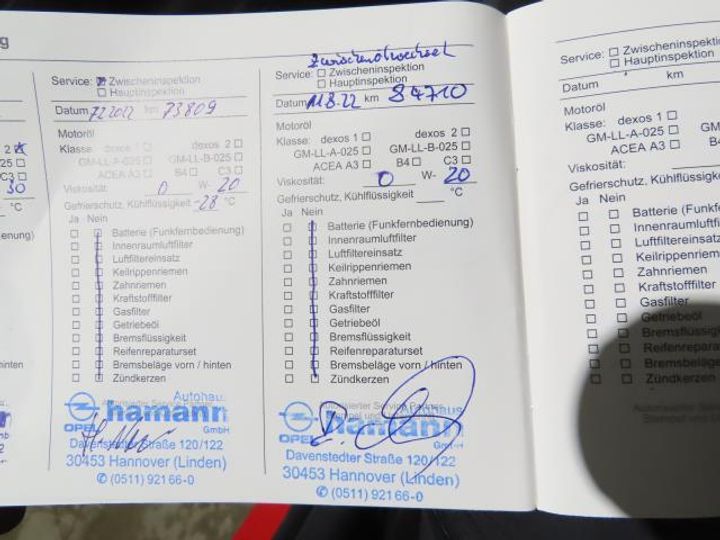 g
Service: Zwischeninspektion
Hauptinspektion
Datum 7.2.2022 km 73809
Motoröl
Klasse: dexos 1 dexos 2
GM-LL-A-025 GM-LL-B-025
ACEA A3 B4 C3
Viskosität: 0 W- 20
Gefrierschutz, Kühlflüssigkeit -28 °C
Ja Nein
Batterie (Funkfernbedienung)
Innenraumluftfilter
Luftfiltereinsatz
Keilrippenriemen
Zahnriemen
Kraftstofffilter
Gasfilter
Getriebeöl
Bremsflüssigkeit
Reifenreparaturset
Bremsbeläge vorn / hinten
Zündkerzen
Autohaus
hamann
OPEL GmbH
Davenstedter Straße 120/122
30453 Hannover (Linden)
✆ (0511) 921 66-0
Zwischenölwechsel
Service: Zwischeninspektion
Hauptinspektion
Datum 11.8.22 km 84710
Motoröl
Klasse: dexos 1 dexos 2
GM-LL-A-025 GM-LL-B-025
ACEA A3 B4 C3
Viskosität: 0 W- 20
Gefrierschutz, Kühlflüssigkeit °C
Ja Nein
Batterie (Funkfernbedienung)
Innenraumluftfilter
Luftfiltereinsatz
Keilrippenriemen
Zahnriemen
Kraftstofffilter
Gasfilter
Getriebeöl
Bremsflüssigkeit
Reifenreparaturset
Bremsbeläge vorn / hinten
Zündkerzen
Autorisierter Service Partner
hamann
OPEL GmbH
Davenstedter Straße 120/122
30453 Hannover (Linden)
✆ (0511) 921 66-0
Service: Zwischeninspektion
Hauptinspektion
Datum km
Motoröl
Klasse: dexos 1
GM-LL-A-025 GM-LL
ACEA A3 B4
Viskosität:
Gefrierschutz, Kühlflüssig
Ja Nein
Batterie (Funkfe
Innenraumluftfi
Luftfiltereinsatz
Keilrippenrieme
Zahnriemen
Kraftstofffilter
Gasfilter
Getriebeöl
Bremsflüssigk
Reifenreparatu
Bremsbeläge
Zündkerzen
Autorisierter Se
Stempel und